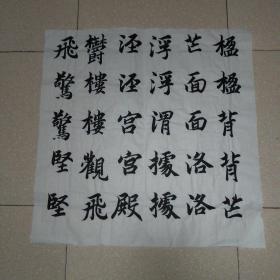 楹楹背背芒
芒面面洛洛
浮浮渭據據
泾泾宮宮殿
鬱樓樓觀飛
飛驚驚堅堅